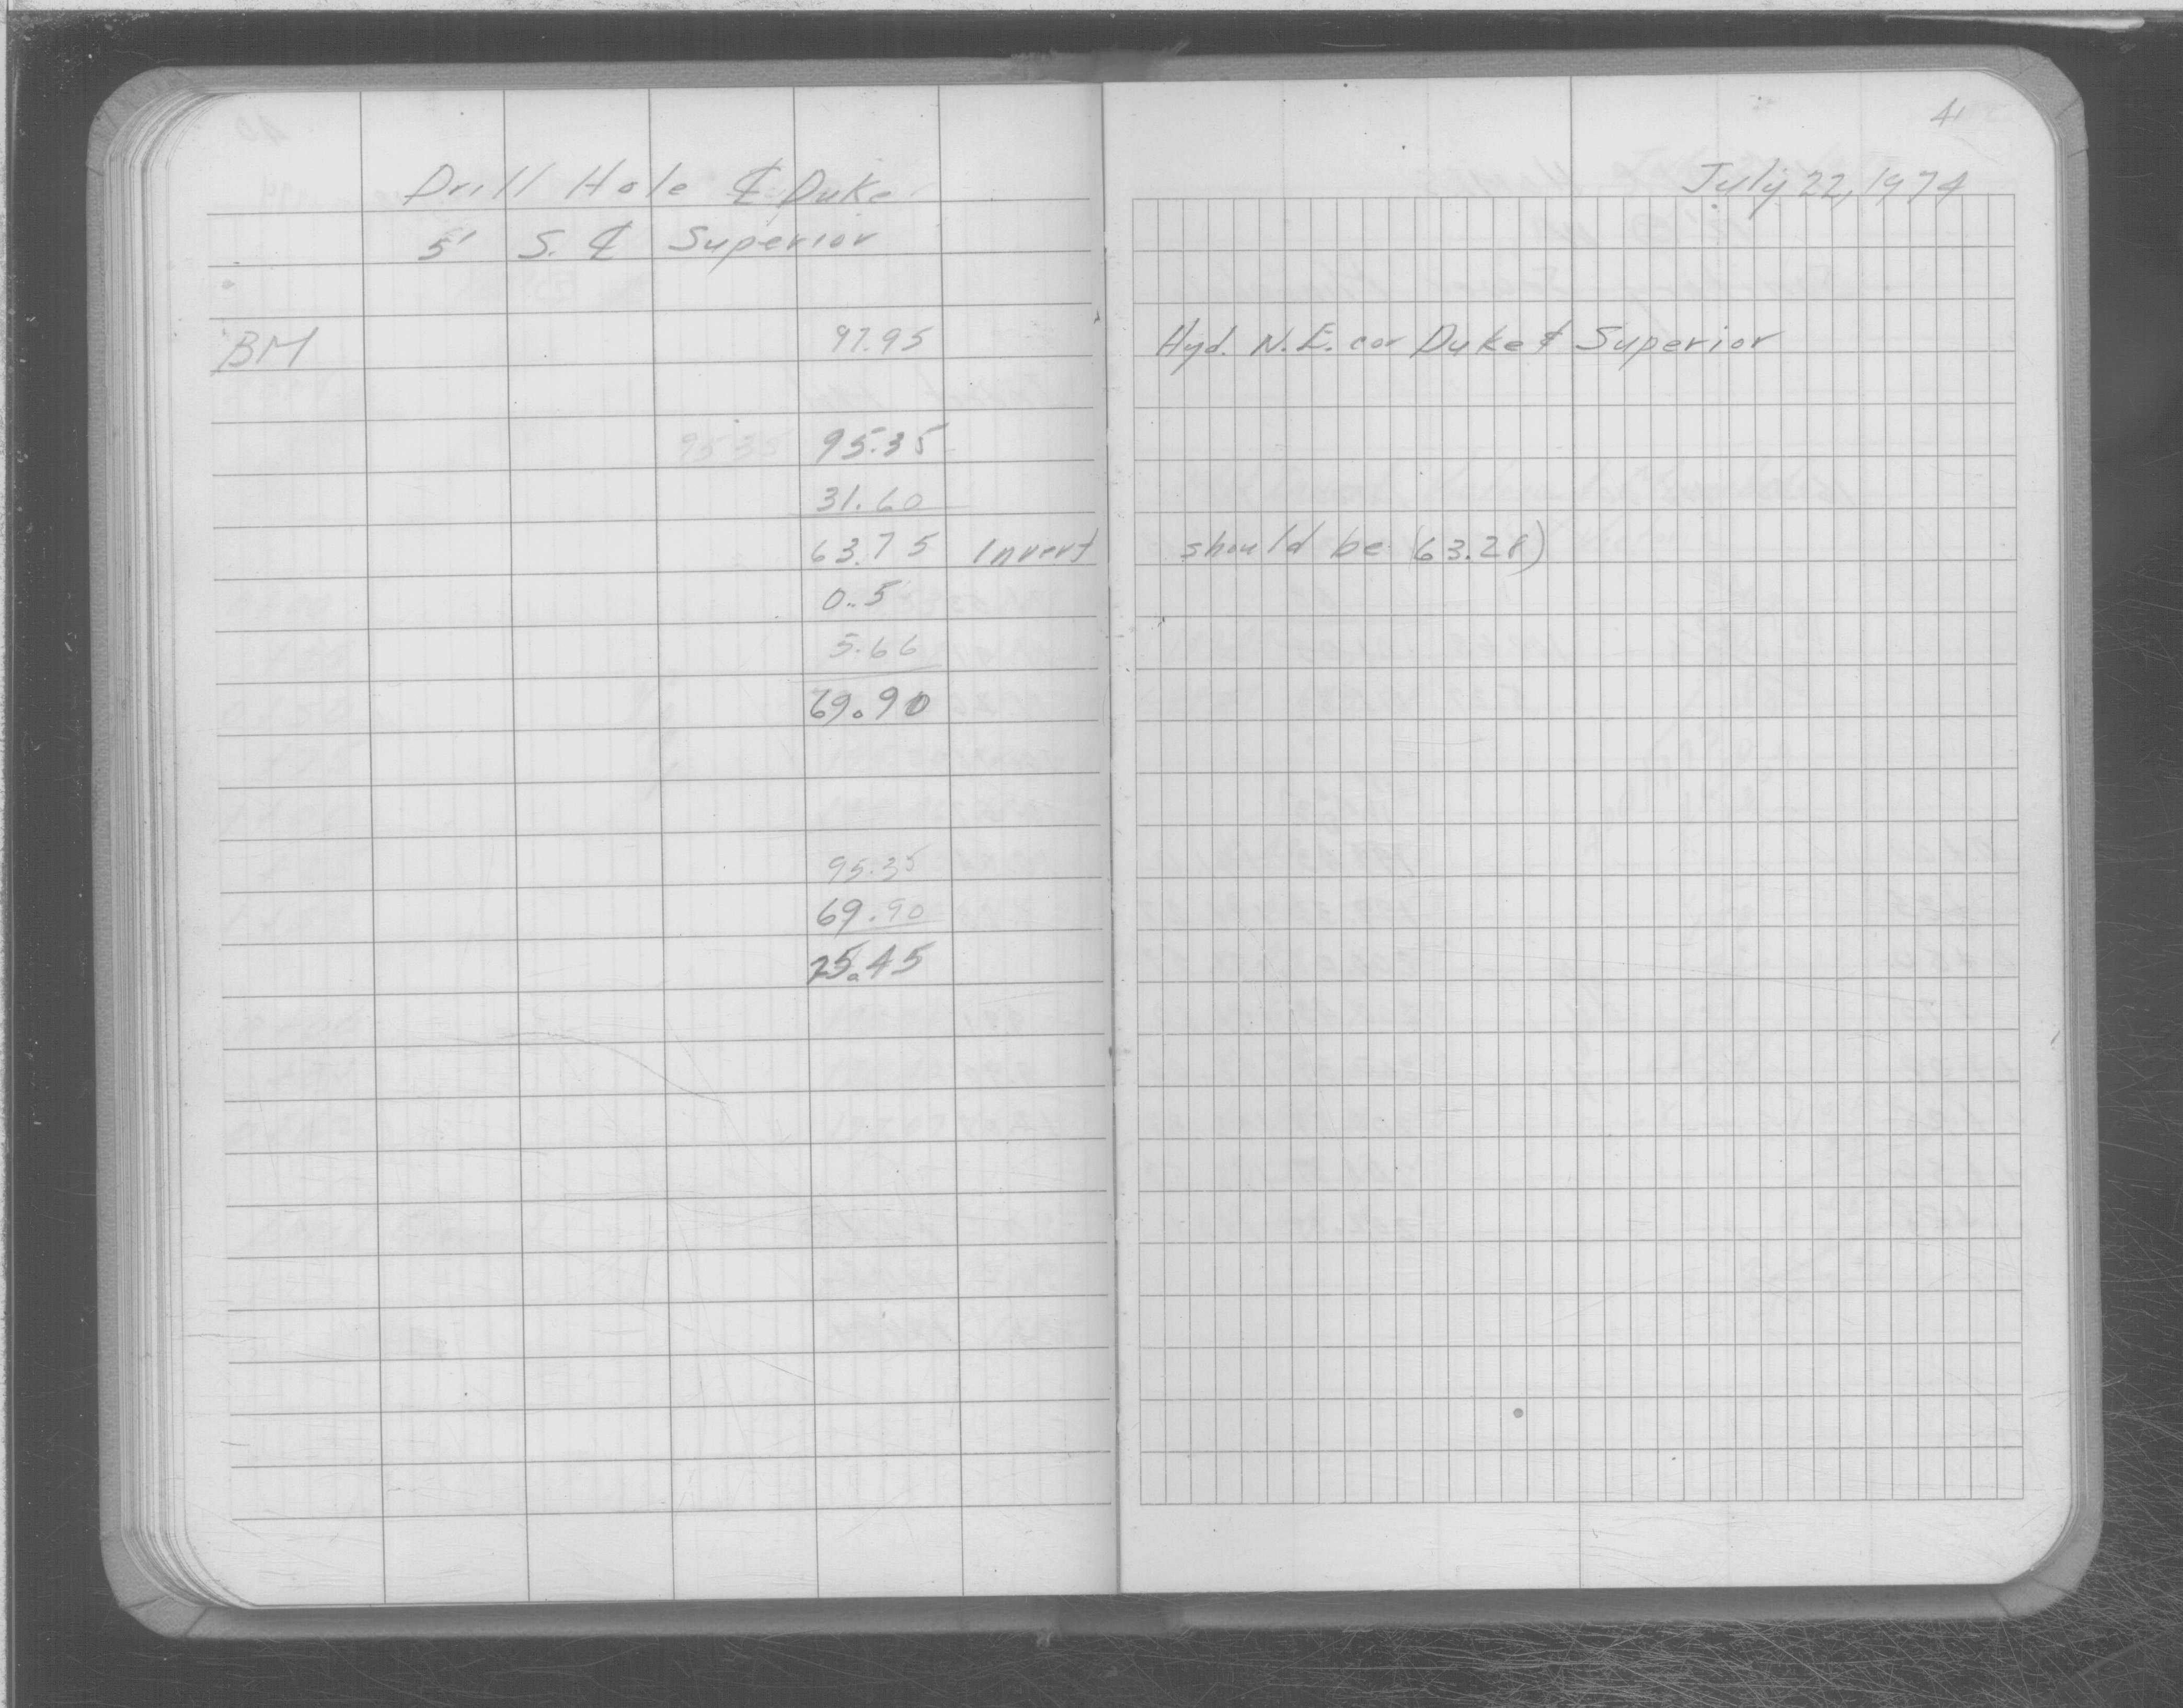 Drill Hole ℄ Duke
5' S. ℄ Superior
BM 97.95
95.35 95.35
31.60
63.75 Invert
0.5
5.66
69.90
95.35
69.90
25.45
41
July 22, 1974
Hyd. N.E. cor Duke & Superior
should be (63.28)